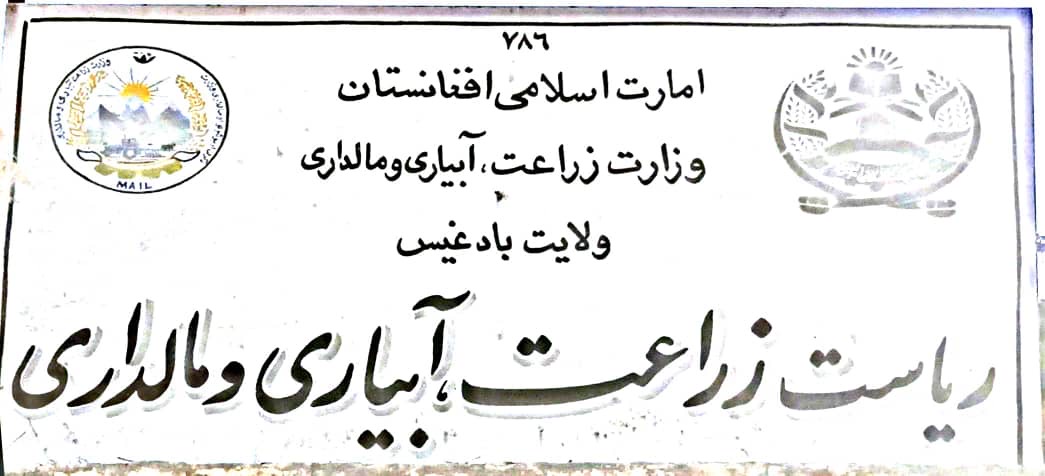 ۷۸۶
امارت اسلامی افغانستان
وزارت زراعت، آبیاری و مالداری
ولایت بادغیس
ریاست زراعت، آبیاری و مالداری
MAIL